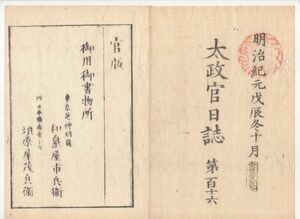 明治紀元戊辰冬十月
太政官日誌 第百十六
官版
御用御書物所
東京芝神明前
和泉屋市兵衛
須原屋茂兵衛